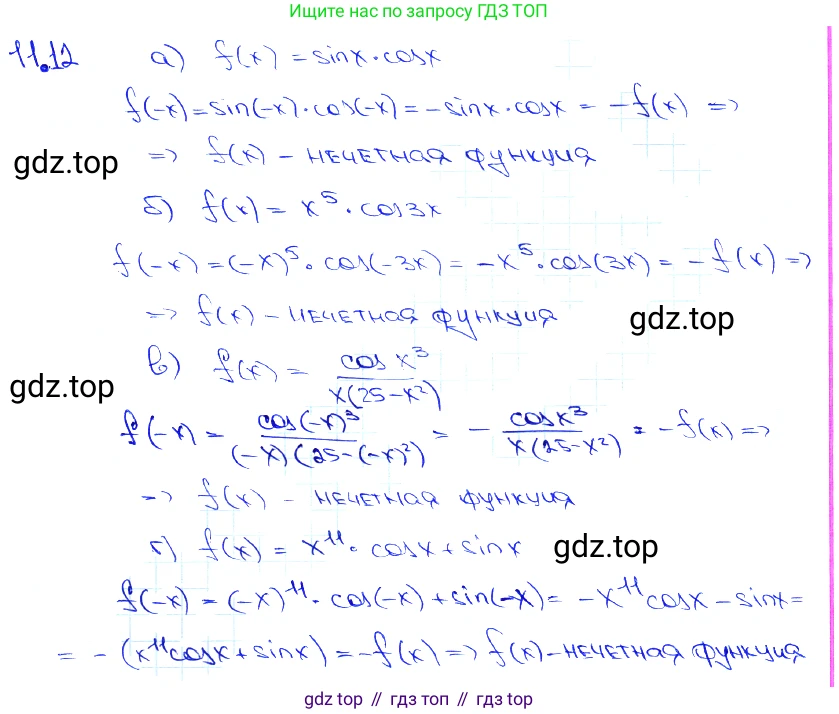 Ищите нас по запросу ГДЗ ТОП
11.12 а) f(x) = sinx·cosx
f(-x) = sin(-x)·cos(-x) = -sinx·cosx = -f(x) =>
=> f(x) - нечетная функция
gdz.top
б) f(x) = x⁵·cos3x
f(-x) = (-x)⁵·cos(-3x) = -x⁵·cos(3x) = -f(x) =>
=> f(x) - нечетная функция
gdz.top
в) f(x) = cos x³ / x(25-x²)
gdz.top
f(-x) = cos(-x)³ / (-x)(25-(-x)²) = - cosx³ / x(25-x²) = -f(x) =>
=> f(x) - нечетная функция
г) f(x) = x¹¹·cosx+sinx
gdz.top
f(-x) = (-x)¹¹·cos(-x)+sin(-x) = -x¹¹cosx-sinx =
= -(x¹¹cosx+sinx) = -f(x) => f(x)-нечетная функция
gdz top // гдз топ // gdz top